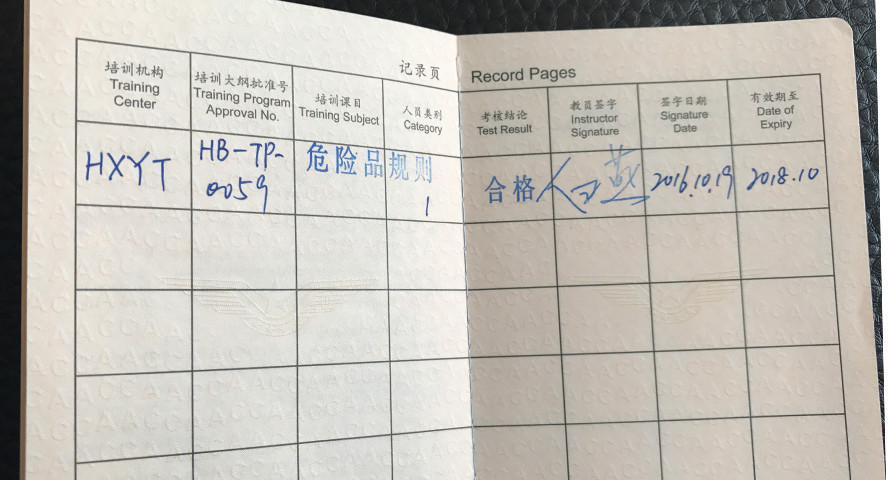 记录页 Record Pages
培训机构
Training
Center
培训大纲批准号
Training Program
Approval No.
培训课目
Training Subject
人员类别
Category
考核结论
Test Result
教员签字
Instructor
Signature
签字日期
Signature
Date
有效期至
Date of
Expiry
HXYT
HB-TP-
0059
危险品规则
1
合格
2016.10.19
2018.10